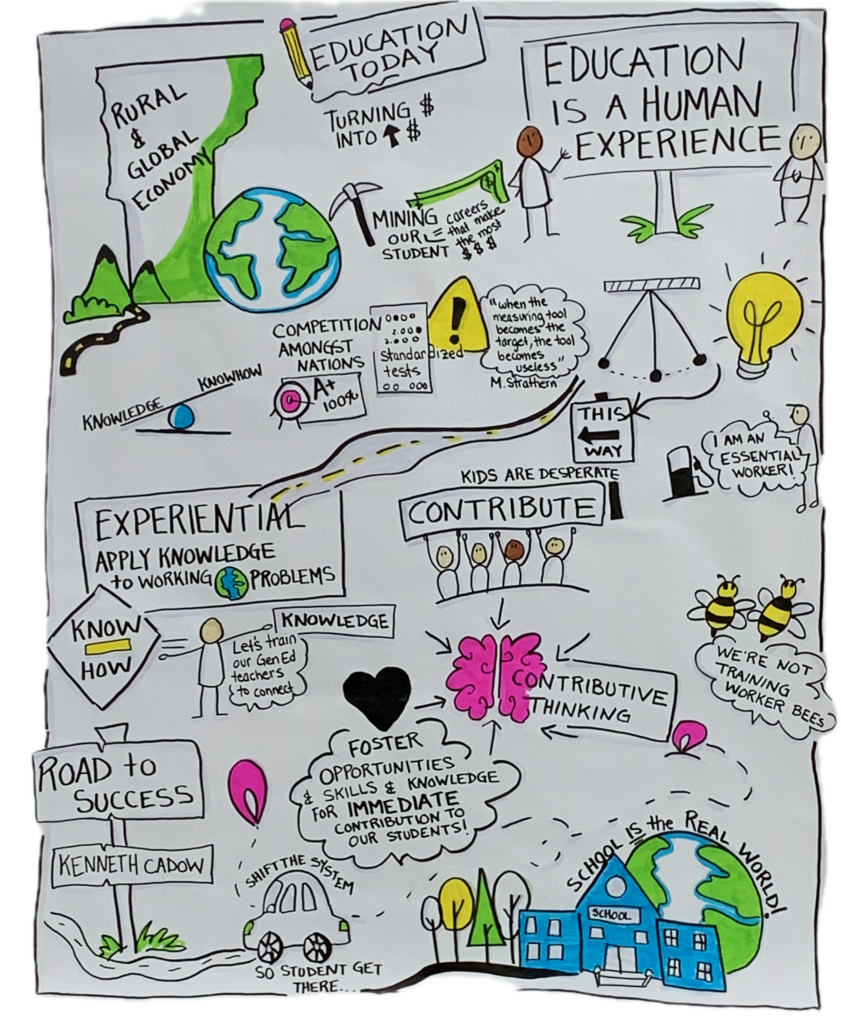 EDUCATION
TODAY
EDUCATION
IS A HUMAN
EXPERIENCE
RURAL
&
GLOBAL
ECONOMY
TURNING $
INTO ↑ $
MINING
OUR
STUDENT
careers
that make
the most
$ $ $
COMPETITION
AMONGST
NATIONS
A+
100%
standardized
tests
!
"when the
measuring tool
becomes the
target, the tool
becomes
useless"
M. Strathern
KNOWHOW
KNOWLEDGE
THIS
WAY
I AM AN
ESSENTIAL
WORKER!
KIDS ARE DESPERATE
CONTRIBUTE
EXPERIENTIAL
APPLY KNOWLEDGE
to WORKING PROBLEMS
KNOW
HOW
KNOWLEDGE
Let's train
our Gen Ed
teachers
to connect
CONTRIBUTIVE
THINKING
WE'RE NOT
TRAINING
WORKER BEES
FOSTER
OPPORTUNITIES
& SKILLS & KNOWLEDGE
FOR IMMEDIATE
CONTRIBUTION TO
OUR STUDENTS!
ROAD to
SUCCESS
KENNETH CADOW
SHIFT THE SYSTEM
SO STUDENT GET
THERE...
SCHOOL IS the REAL WORLD!
SCHOOL